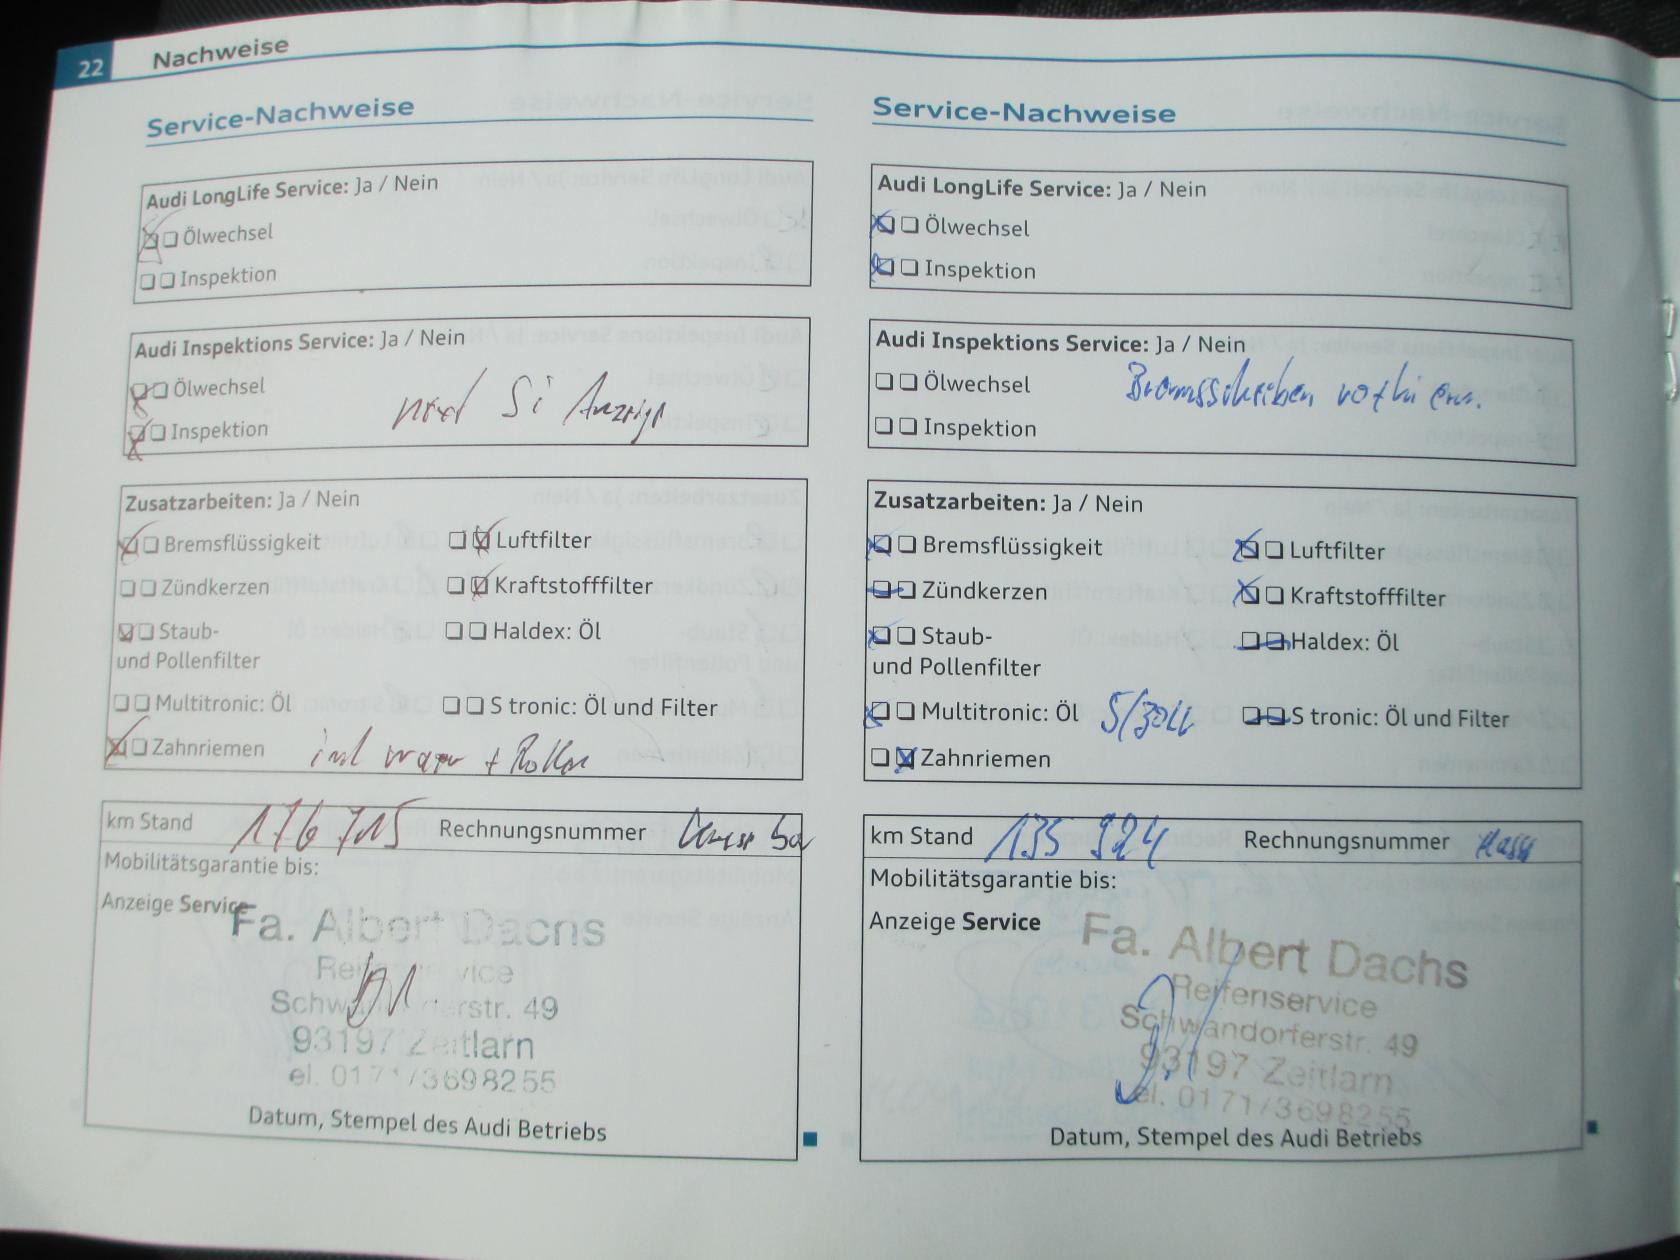 22 Nachweise
Service-Nachweise
Audi LongLife Service: Ja / Nein
Ölwechsel
Inspektion
Audi Inspektions Service: Ja / Nein
Ölwechsel
Inspektion
Si Anzeige
Zusatzarbeiten: Ja / Nein
Bremsflüssigkeit
Luftfilter
Zündkerzen
Kraftstofffilter
Staub-
und Pollenfilter
Haldex: Öl
Multitronic: Öl
S tronic: Öl und Filter
Zahnriemen
+ Rollen
km Stand 176 715 Rechnungsnummer
Mobilitätsgarantie bis:
Anzeige Service
Fa. Albert Dachs
Reifenservice
Schwandorferstr. 49
93197 Zeitlarn
el. 0171/3698255
Datum, Stempel des Audi Betriebs
Service-Nachweise
Audi LongLife Service: Ja / Nein
Ölwechsel
Inspektion
Audi Inspektions Service: Ja / Nein
Ölwechsel
Bremsscheiben
Inspektion
Zusatzarbeiten: Ja / Nein
Bremsflüssigkeit
Luftfilter
Zündkerzen
Kraftstofffilter
Staub-
und Pollenfilter
Haldex: Öl
Multitronic: Öl
S tronic: Öl und Filter
Zahnriemen
km Stand 135 924 Rechnungsnummer
Mobilitätsgarantie bis:
Anzeige Service
Fa. Albert Dachs
Reifenservice
Schwandorferstr. 49
93197 Zeitlarn
el. 0171/3698255
Datum, Stempel des Audi Betriebs